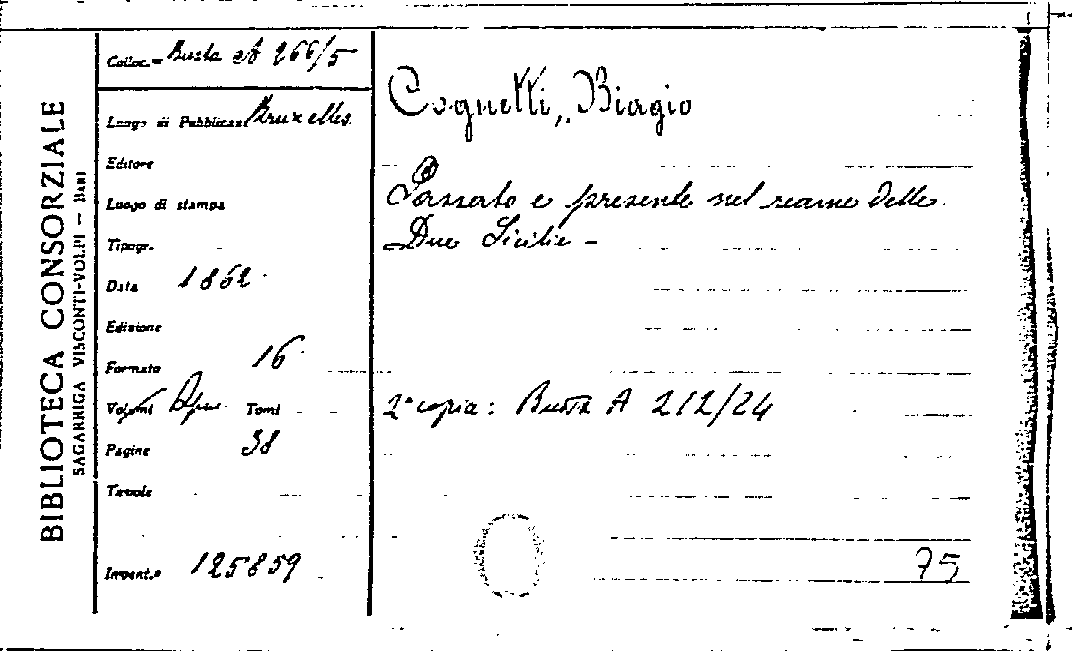 BIBLIOTECA CONSORZIALE
SAGARRIGA VISCONTI-VOLPI — BARI
Colloc.= Busta A 266/5
Luogo di Pubblicaz. Bruxelles
Editore
Luogo di stampa
Tipogr.
Data 1862
Edizione
Formato 16
Volumi Opu. Tomi
Pagine 38
Tavole
Invent.o 125859
Cognetti, Biagio
Passato e presente nel reame delle
Due Sicilie -
2ª copia: Busta A 212/24
75